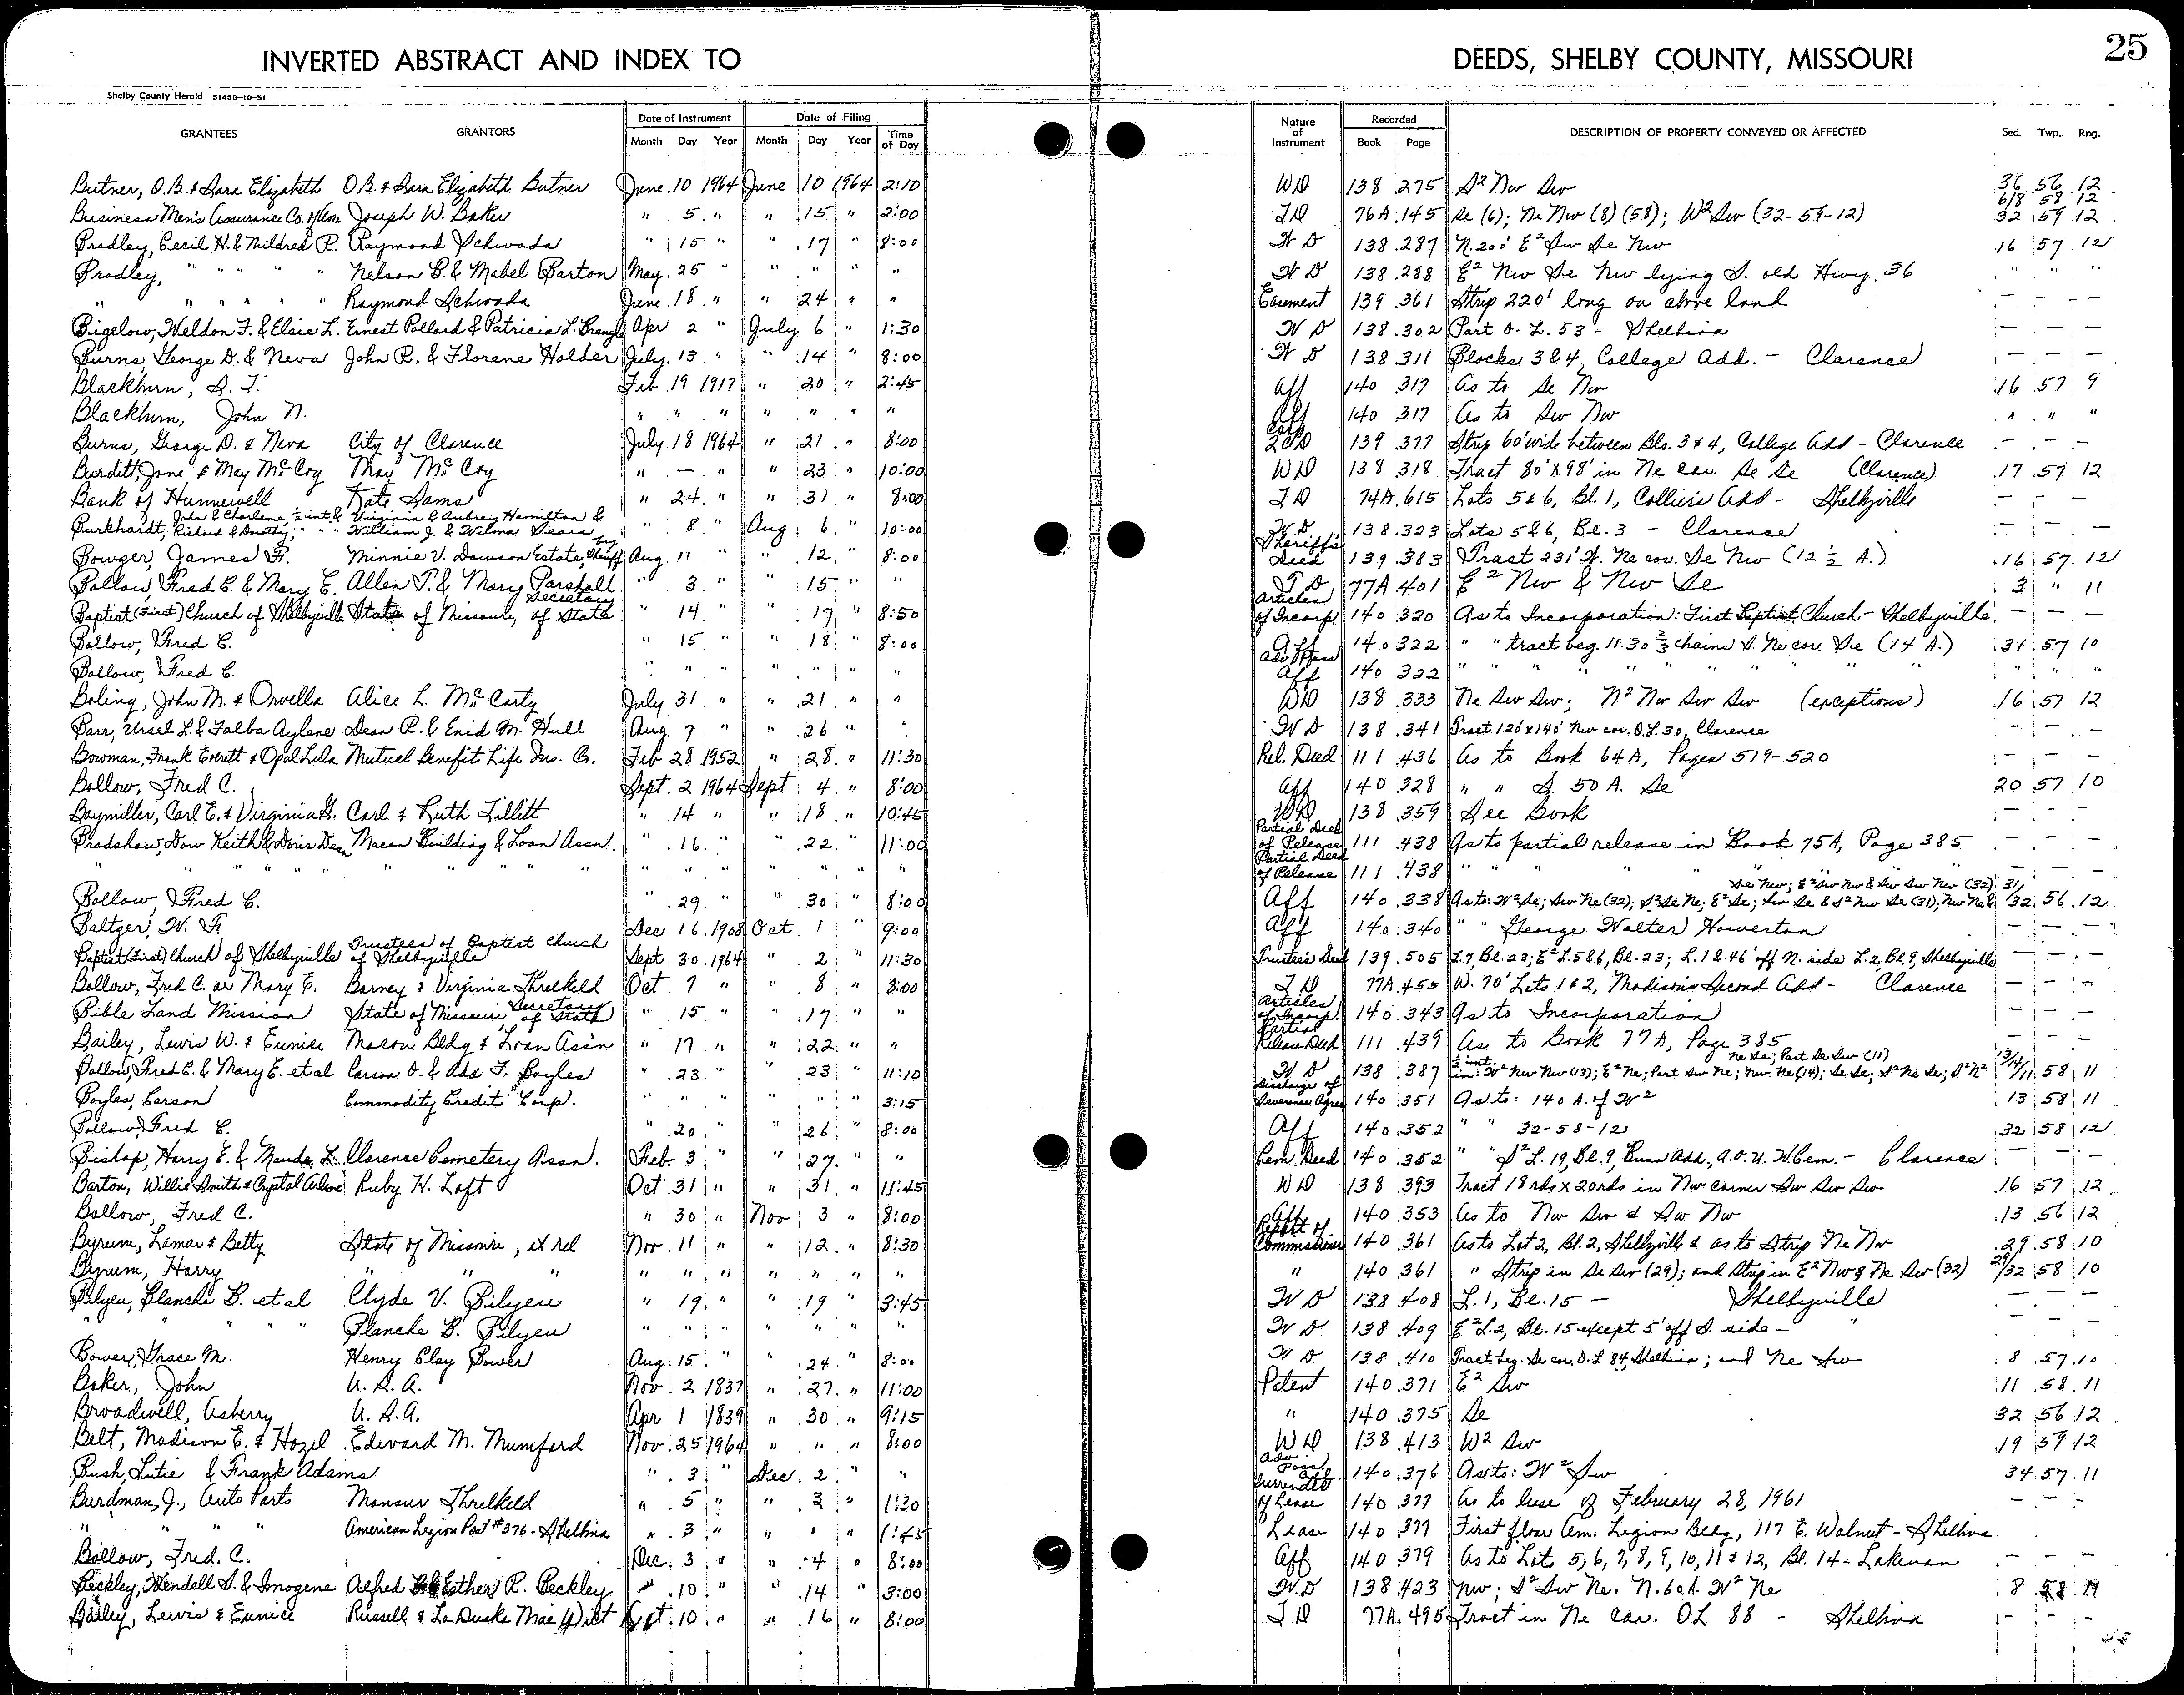 INVERTED ABSTRACT AND INDEX TO DEEDS, SHELBY COUNTY, MISSOURI 25
Shelby County Herald 51458-10-51
GRANTEES GRANTORS Date of Instrument Month Day Year Date of Filing Month Day Year Time of Day Nature of Instrument Recorded Book Page DESCRIPTION OF PROPERTY CONVEYED OR AFFECTED Sec. Twp. Rng.
Butner, O.B. & Sara Elizabeth O.B. & Sara Elizabeth Butner June 10 1964 June 10 1964 2:10 WD 138 275 S² Nw Sw 36 56 12
Business Men's Assurance Co. of Am Joseph W. Baker " 5 " " 15 " 2:00 TD 76A 145 Se (6); Ne Nw (8) (58); W² Sw (32-59-12) 6/8 58 12 32 59 12
Bradley, Cecil H. & Mildred R. Raymond Schwada " 15 " " 17 " 8:00 WD 138 287 N. 200' E² Sw Se Nw 16 57 12
Bradley, " " " " Nelson B. & Mabel Barton May 25 " " " " " WD 138 288 E² Nw Se Nw lying S. old Hwy. 36 " " "
" " " " " " Raymond Schwada June 18 " " 24 " " Easement 139 361 Strip 220' long on above land — — —
Bigelow, Weldon F. & Elsie L. Ernest Pollard & Patricia L. Apr 2 " July 6 " 1:30 WD 138 302 Part O. L. 53 - Shelbina — — —
Burns, George D. & Neva John R. & Florene Holder July 13 " " 14 " 8:00 WD 138 311 Blocks 3 & 4, College Add. - Clarence — — —
Blackburn, S. T. Feb 19 1917 " 20 " 2:45 Aff 140 317 As to Se Nw 16 57 9
Blackburn, John N. " " " " " " " Aff 140 317 As to Sw Nw " " "
Burns, George D. & Neva City of Clarence July 18 1964 " 21 " 8:00 Corp QCD 139 377 Strip 60' wide between Bls. 3 & 4, College Add - Clarence — — —
Burditt, Jane & May McCoy May McCoy " — " " 23 " 10:00 WD 138 318 Tract 80' X 98' in Ne cor. Se Se (Clarence) 17 57 12
Bank of Hunnewell Kate Sams " 24 " " 31 " 8:00 TD 74A 615 Lots 5 & 6, Bl. 1, Collier's Add - Shelbyville — — —
Burkhardt, John & Charlene, ½ int & Richard & Dorothy, " " Virginia & Aubra Hamilton & William J. & Wilma Sears " 8 " Aug 6 " 10:00 WD 138 323 Lots 5 & 6, Bl. 3 - Clarence — — —
Bowger, James F. Minnie V. Dawson Estate, by Sheriff Aug 11 " " 12 " 8:00 Sheriff's Deed 139 383 Tract 231' W. Ne cor. Se Nw (12 ½ A.) 16 57 12
Bollow, Fred C. & Mary E. Allen P. & Mary Parshall " 3 " " 15 " " TD 77A 401 E² Nw & Nw Se 3 " 11
Baptist (First) Church of Shelbyville State of Missouri, Secretary of State " 14 " " 17 " 8:50 Articles of Incorp 140 320 As to Incorporation: First Baptist Church - Shelbyville — — —
Bollow, Fred C. " 15 " " 18 " 8:00 Aff 140 322 " " tract beg. 11.30 ⅔ chains S. Ne cor. Se (14 A.) 31 57 10
Bollow, Fred C. " " " " " " " Adv Poss Aff 140 322 " " " " " " " " "
Boling, John M. & Orvella Alice L. McCarty July 31 " " 21 " " WD 138 333 Ne Sw Sw; N² Nw Sw Sw (exceptions) 16 57 12
Barr, Ursel L. & Falba Aylene Dean R. & Enid M. Hull Aug 7 " " 26 " " WD 138 341 Tract 120' x 140' Nw cor. O.L. 30, Clarence — — —
Bowman, Frank Everett & Opal Lula Mutual Benefit Life Ins. Co. Feb 28 1952 " 28 " 11:30 Rel. Deed 111 436 As to Book 64A, Pages 519-520 — — —
Bollow, Fred C. Sept. 2 1964 Sept 4 " 8:00 Aff 140 328 " " S. 50 A. Se 20 57 10
Baymiller, Carl E. & Virginia G. Carl & Ruth Tillitt " 14 " " 18 " 10:45 WD 138 359 See Book — — —
Bradshaw, Dow Keith & Doris Dean Macon Building & Loan Assn. " 16 " " 22 " 11:00 Partial Deed of Release 111 438 As to partial release in Book 75A, Page 385 — — —
" " " " " " " " " " " " " " " " Partial Deed of Release 111 438 " " " " " "
Bollow, Fred C. " 29 " " 30 " 8:00 Aff 140 338 As to: W² Se; Sw Ne (32); S² Se Ne; E² Se; Sw Se & S² Nw Se (31); Nw Ne & Se Nw; E² Sw Nw & Sw Sw Nw (32) 31/32 56 12
Baltzer, W. F. Dec 16 1908 Oct 1 " 9:00 Aff 140 340 " " George Walter Howerton — — —
Baptist (First) Church of Shelbyville Trustees of Baptist Church of Shelbyville Sept. 30 1964 " 2 " 11:30 Trustee's Deed 139 505 L. 7, Bl. 23; E² L. 5 & 6, Bl. 23; L. 1 & 46' off N. side L. 2, Bl. 9, Shelbyville — — —
Bollow, Fred C. or Mary E. Barney & Virginia Threlkeld Oct 7 " " 8 " 8:00 TD 77A 455 W. 70' Lots 1 & 2, Madison's Second Add - Clarence — — —
Bible Land Mission State of Missouri Secretary of State " 15 " " 17 " " Articles of Incorp. 140 343 As to Incorporation — — —
Bailey, Lewis W. & Eunice Macon Bldg & Loan Ass'n " 17 " " 22 " " Partial Release Deed 111 439 As to Book 77A, Page 385 — — —
Bollow, Fred C. & Mary E. et al Carson O. & Ada F. Boyles " 23 " " 23 " 11:10 WD 138 387 ½ int. in: W² Nw Nw (13); E² Ne; Part Sw Ne; Nw Ne (14); Se Se; S² Ne Se; S² N² Ne Se; Part Se Sw (11) 13/14/11 58 11
Boyles, Carson Commodity Credit Corp. " " " " " " 3:15 Discharge of Severance Agree 140 351 As to: 140 A. of W² 13 58 11
Bollow, Fred C. " 20 " " 26 " 8:00 Aff 140 352 " " 32-58-12 32 58 12
Bishop, Harry E. & Maude L. Clarence Cemetery Assn. Feb. 3 " " 27 " " Cem. Deed 140 352 " " S² L. 19, Bl. 9, Bunn Add., A.O.U.W. Cem. - Clarence — — —
Barton, Willis Smith & Crystal Arlene Ruby H. Loft Oct 31 " " 31 " 11:45 WD 138 393 Tract 18 rds X 20 rds in Nw corner Sw Sw Sw 16 57 12
Bollow, Fred C. " 30 " Nov 3 " 8:00 Aff 140 353 As to Nw Sw & Sw Nw 13 56 12
Byrum, Lamar & Betty State of Missouri, ex rel Nov. 11 " " 12 " 8:30 Report of Commissioner 140 361 As to Lot 2, Bl. 2, Shelbyville & as to Strip Ne Nw 29 58 10
Byrum, Harry " " " " " " " " " " " 140 361 " Strip in Se Sw (29); and Strip in E² Nw & Ne Sw (32) 29/32 58 10
Bilyeu, Blanche B. et al Clyde V. Bilyeu " 19 " " 19 " 3:45 WD 138 408 L. 1, Bl. 15 - Shelbyville — — —
" " " " Blanche B. Bilyeu " " " " " " " WD 138 409 E² L. 2, Bl. 15 except 5' off S. side - " — — —
Bower, Grace M. Henry Clay Bower Aug. 15 " " 24 " 8:00 WD 138 410 Tract beg. Se cor. O.L. 84, Shelbina; and Ne Sw 8 57 10
Baker, John U.S.A. Nov 2 1837 " 27 " 11:00 Patent 140 371 E² Sw 11 58 11
Broadwell, Asberry U.S.A. Apr 1 1839 " 30 " 9:15 " 140 375 Se 32 56 12
Belt, Madison E. & Hazel Edward M. Mumford Nov 25 1964 " " " 8:00 WD 138 413 W² Sw 19 59 12
Bush, Lutie & Frank Adams " 3 " Dec. 2 " " Adv. Poss. Aff 140 376 As to: W² Sw 34 57 11
Burdman, J., Auto Parts Monsur Threlkeld " 5 " " 3 " 1:30 Surrender of Lease 140 377 As to lease of February 28, 1961 — — —
" " " " American Legion Post #376 - Shelbina " 3 " " " " 1:45 Lease 140 377 First floor Am. Legion Bldg, 117 E. Walnut - Shelbina
Bollow, Fred. C. Dec. 3 " " 4 " 8:00 Aff 140 379 As to Lots 5, 6, 7, 8, 9, 10, 11 & 12, Bl. 14 - Lakenan — — —
Beckley, Wendell S. & Imogene Alfred Esther R. Beckley " 10 " " 14 " 3:00 W.D 138 423 Nw; S² Sw Ne. N. 60 A. W² Ne 8 58 11
Bailey, Lewis & Eunice Russell & La Duska Mae Wilt Oct 10 " " 16 " 8:00 TD 77A 495 Tract in Ne cor. OL 88 - Shelbina — — —